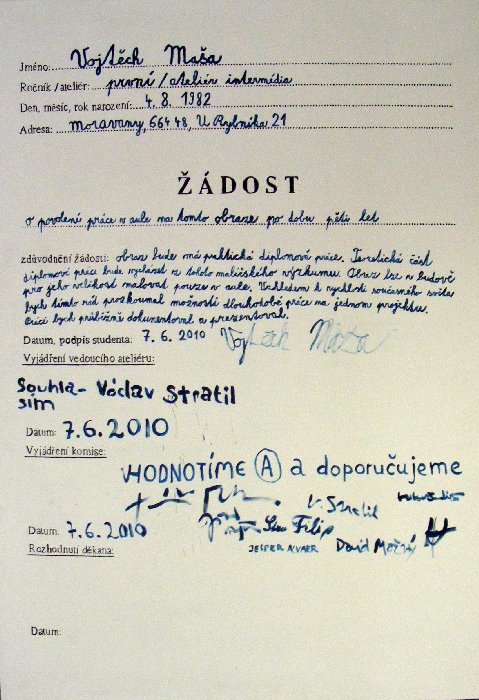 Jméno: Vojtěch Maša
Ročník/ateliér: první/ateliér intermédia
Den, měsíc, rok narození: 4. 8. 1982
Adresa: Moravany, 664 48, U Rybníka 21
ŽÁDOST
o povolení práce v aule na tomto obraze po dobu pěti let
zdůvodnění žádosti: obraz bude má praktická diplomová práce. Teoretická část
diplomové práce bude vycházet z tohoto malířského výzkumu. Obraz lze v budově
pro jeho velikost malovat pouze v aule. Vzhledem k rychlosti současného světa
bych tímto rád prozkoumal možnosti dlouhodobé práce na jednom projektu.
Práci bych průběžně dokumentoval a prezentoval.
Datum, podpis studenta: 7. 6. 2010 Vojtěch Maša
Vyjádření vedoucího ateliéru:
Souhla- Václav Stratil
sím
Datum: 7.6.2010
Vyjádření komise:
HODNOTÍME A a doporučujeme
V. Stratil
Filip
Datum: 7.6.2010
JESPER ALVAER David Možný
Rozhodnutí děkana:
Datum: